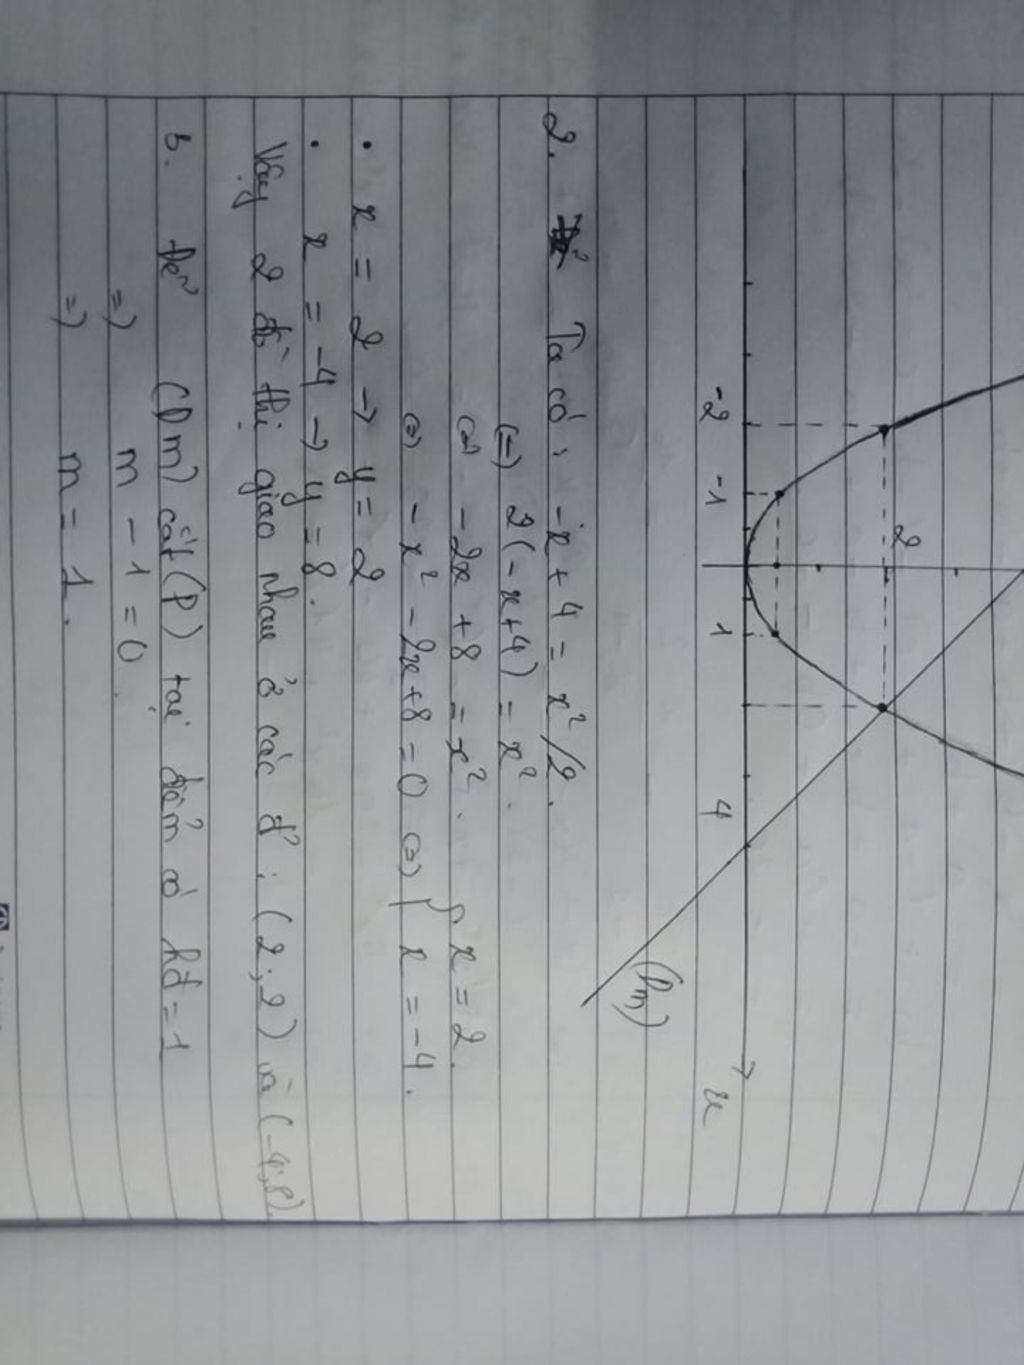 2
-2 -1 1 4 x
(Dm)
2. Ta có: -x + 4 = x²/2.
(=) 2(-x+4) = x².
(=) -2x + 8 = x².
(=) -x² - 2x + 8 = 0 (=) { x = 2. x = -4.
• x = 2 → y = 2
• x = -4 → y = 8.
Vậy 2 đồ thị giao nhau ở các đ': (2;2) và (-4;8).
3. Để (Dm) cắt (P) tại điểm có hđ = 1
=) m - 1 = 0.
=) m = 1.